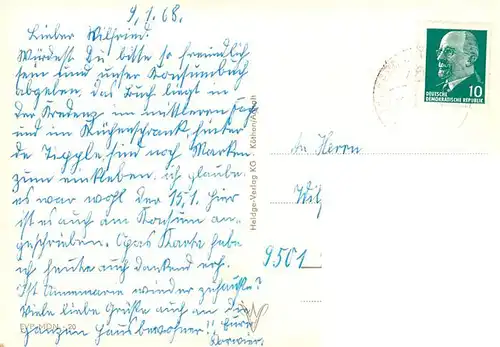 9.1.68.
Lieber Wilfried.
Würdest Du bitte so freundlich
sein und unser Konsumbuch
abgeben, das Buch liegt in
der Kredenz im mittleren Fach
und im Küchenschrank hinter
de Tippl sind noch Marken
zum einkleben. ich glaube
es war wohl der 15.1. hier
ist es auch am Konsum an-
geschrieben. Opas Karte habe
ich heute auch dankend erh.
Ist Annemarie wieder zuhause?
Viele liebe Grüße auch an die
ganzen Hausbewohner!! Eure
EVP MDN -.20
Heldge-Verlag KG · Köthen/Anhalt
10
DEUTSCHE
DEMOKRATISCHE REPUBLIK
An Herrn
Wilf
9501